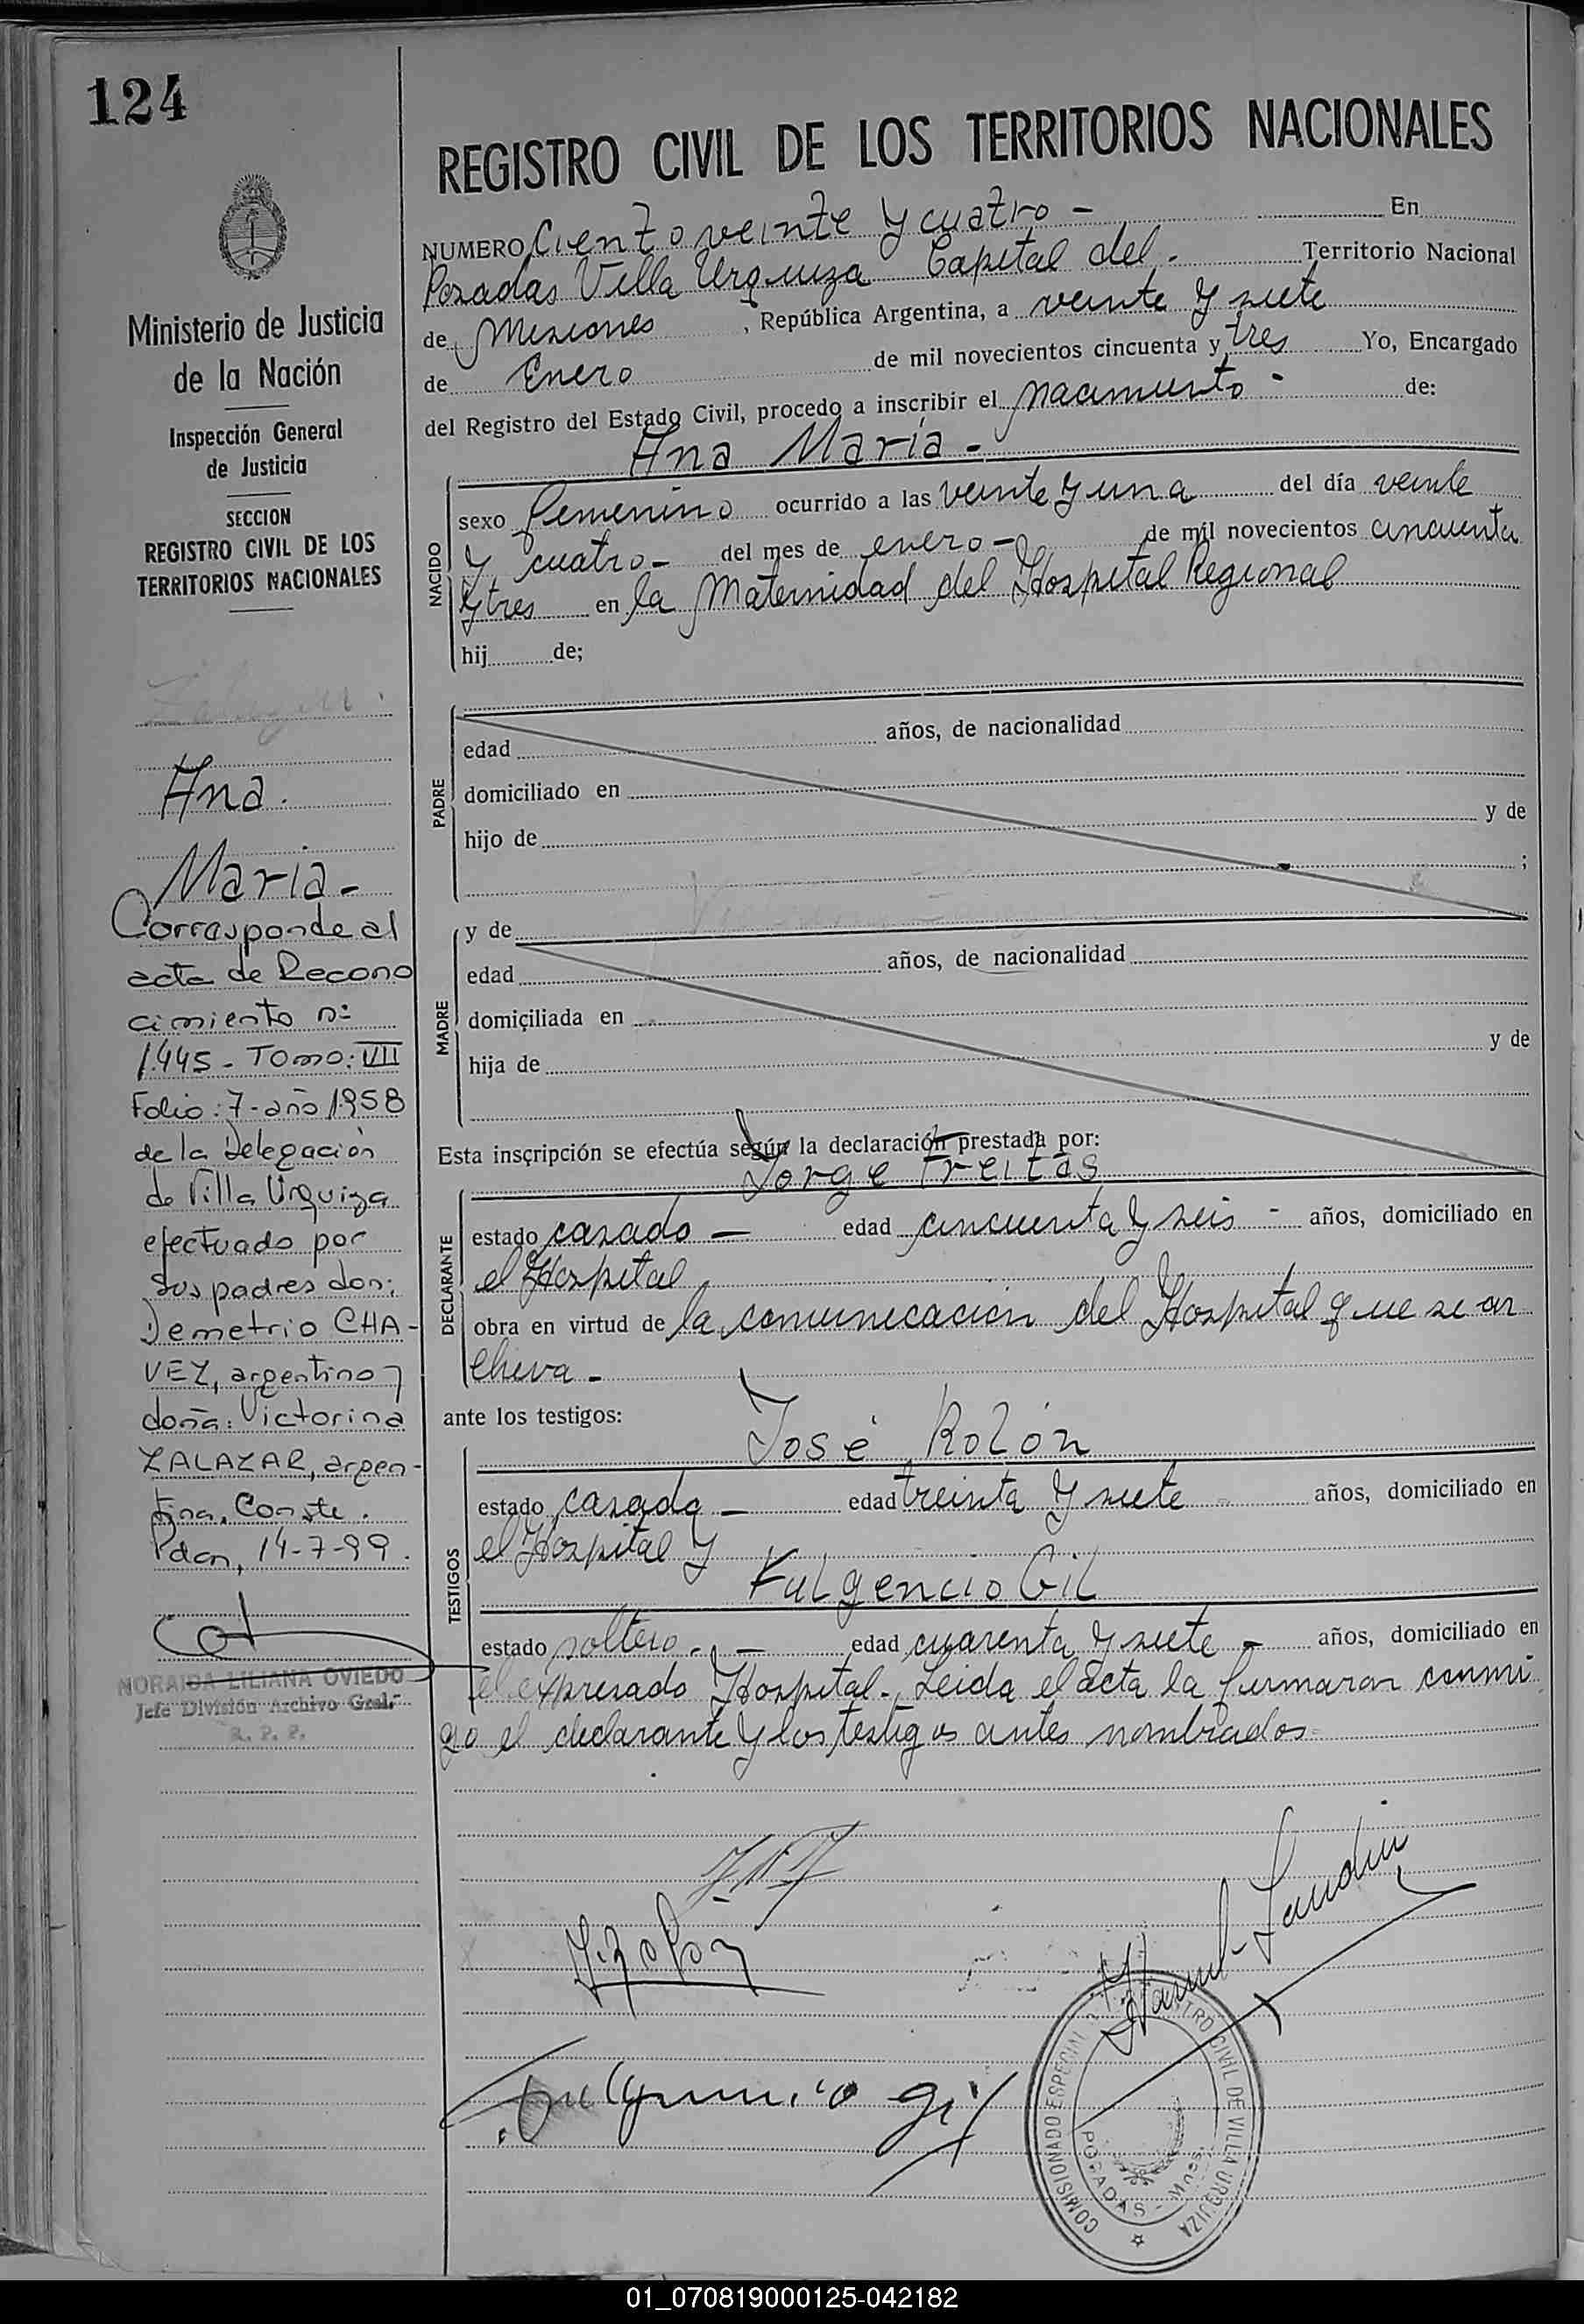 124
REGISTRO CIVIL DE LOS TERRITORIOS NACIONALES
NUMERO Ciento veinte y cuatro - En
Posadas Villa Urquiza Capital del - Territorio Nacional
de Misiones, República Argentina, a veinte y siete
de Enero de mil novecientos cincuenta y tres Yo, Encargado
del Registro del Estado Civil, procedo a inscribir el nacimiento - de:
Ana María -
NACIDO
sexo femenino ocurrido a las veinte y una del día veinte
y cuatro - del mes de enero - de mil novecientos cincuenta
y tres en la Maternidad del Hospital Regional
hij de;
PADRE
edad años, de nacionalidad
domiciliado en
hijo de y de
;
MADRE
y de
edad años, de nacionalidad
domiçiliada en
hija de y de
Esta insçripción se efectúa según la declaración prestada por:
Jorge Freitas
DECLARANTE
estado casado - edad cincuenta y seis - años, domiciliado en
el Hospital
obra en virtud de la comunicación del Hospital que se ar
chiva -
ante los testigos:
José Rolón
TESTIGOS
estado casado - edad treinta y siete - años, domiciliado en
el Hospital y
Fulgencio Gil
estado soltero - edad cuarenta y siete - años, domiciliado en
el expresado Hospital - Leida el acta la firmaron conmi
go el declarante y los testigos antes nombrados
Ministerio de Justicia
de la Nación
Inspección General
de Justicia
SECCION
REGISTRO CIVIL DE LOS
TERRITORIOS NACIONALES
Ana.
María -
Corresponde al
acta de Recono
cimiento nº
1.445 - Tomo: VII
Folio: 7 - año 1.958
de la Delegación
de Villa Urquiza
efectuado por
sus padres don:
Demetrio CHA-
VEZ, argentino y
doña: Victorina
ZALAZAR, argen-
tina. Conste.
Pdas, 14-7-99.
NORAIDA LILIANA OVIEDO
Jefe División Archivo Gral.
R. P. P.
J. Rolón
Fulgencio gil
COMISIONADO ESPECIAL REGISTRO CIVIL DE VILLA URQUIZA
POSADAS - Mnes.
01_070819000125-042182